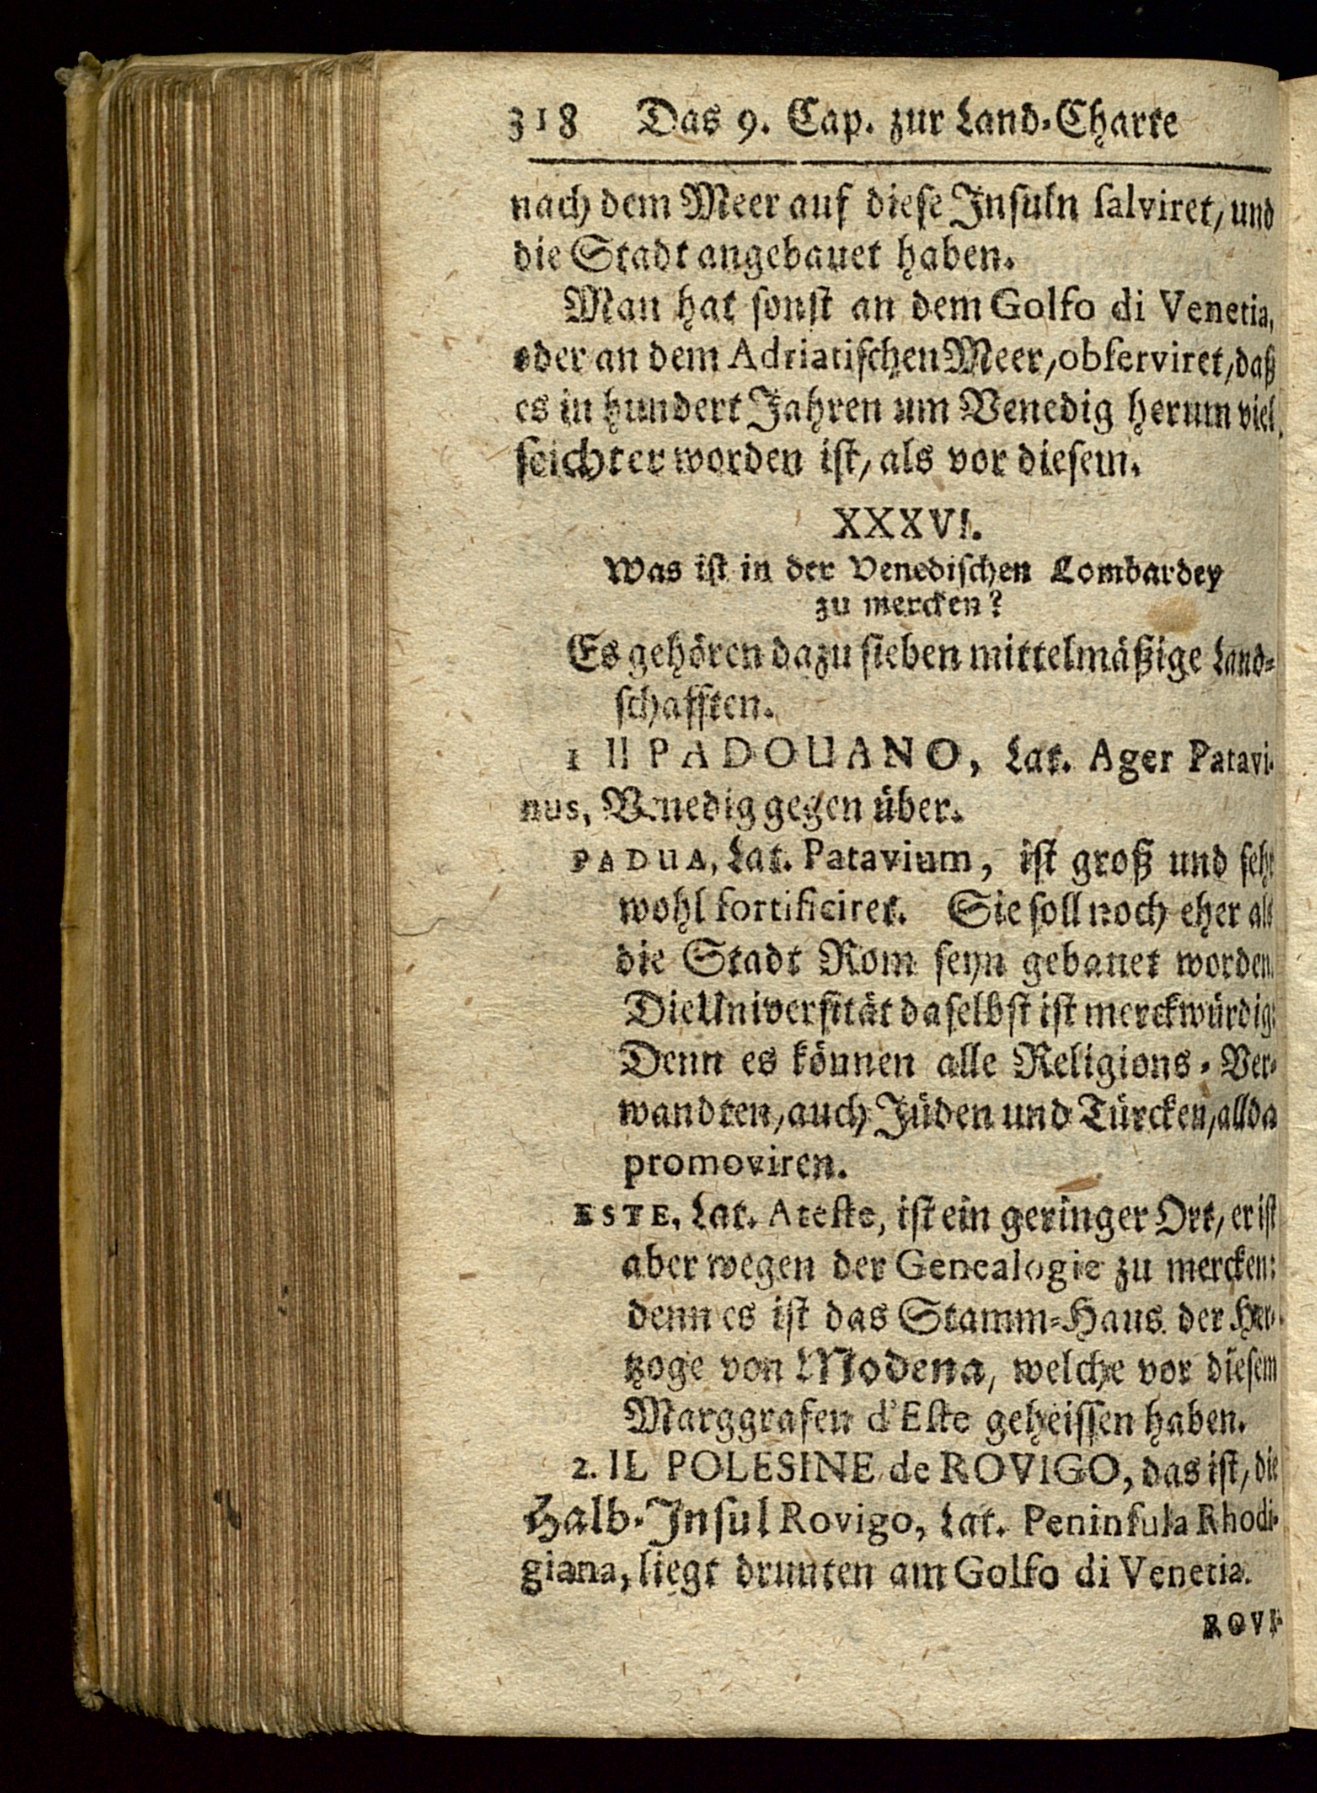 318 Das 9. Cap. zur Land-Charte
nach dem Meer auf diese Insuln salviret, und
die Stadt angebauet haben.
Man hat sonst an dem Golfo di Venetia,
oder an dem Adriatischen Meer, observiret, daß
es in hundert Jahren um Venedig herum viel
seichter worden ist, als vor diesem.
XXXVI.
Was ist in der Venedischen Lombardey
zu mercken?
Es gehören dazu sieben mittelmäßige Land-
schafften.
1 Il PADOUANO, Lat. Ager Patavi-
nus, Venedig gegen über.
PADUA, Lat. Patavium, ist groß und sehr
wohl fortificiret. Sie soll noch eher als
die Stadt Rom seyn gebauet worden.
Die Universität daselbst ist merckwürdig:
Denn es können alle Religions-Ver-
wandten, auch Jüden und Türcken, allda
promoviren.
ESTE, Lat. Ateste, ist ein geringer Ort, er ist
aber wegen der Genealogie zu mercken:
denn es ist das Stamm-Haus der Her-
tzoge von Modena, welche vor diesem
Marggrafen d'Este geheissen haben.
2. IL POLESINE de ROVIGO, das ist, die
Halb-Insul Rovigo, Lat. Peninsula Rhodi-
giana, liegt drunten am Golfo di Venetia.
ROVI-